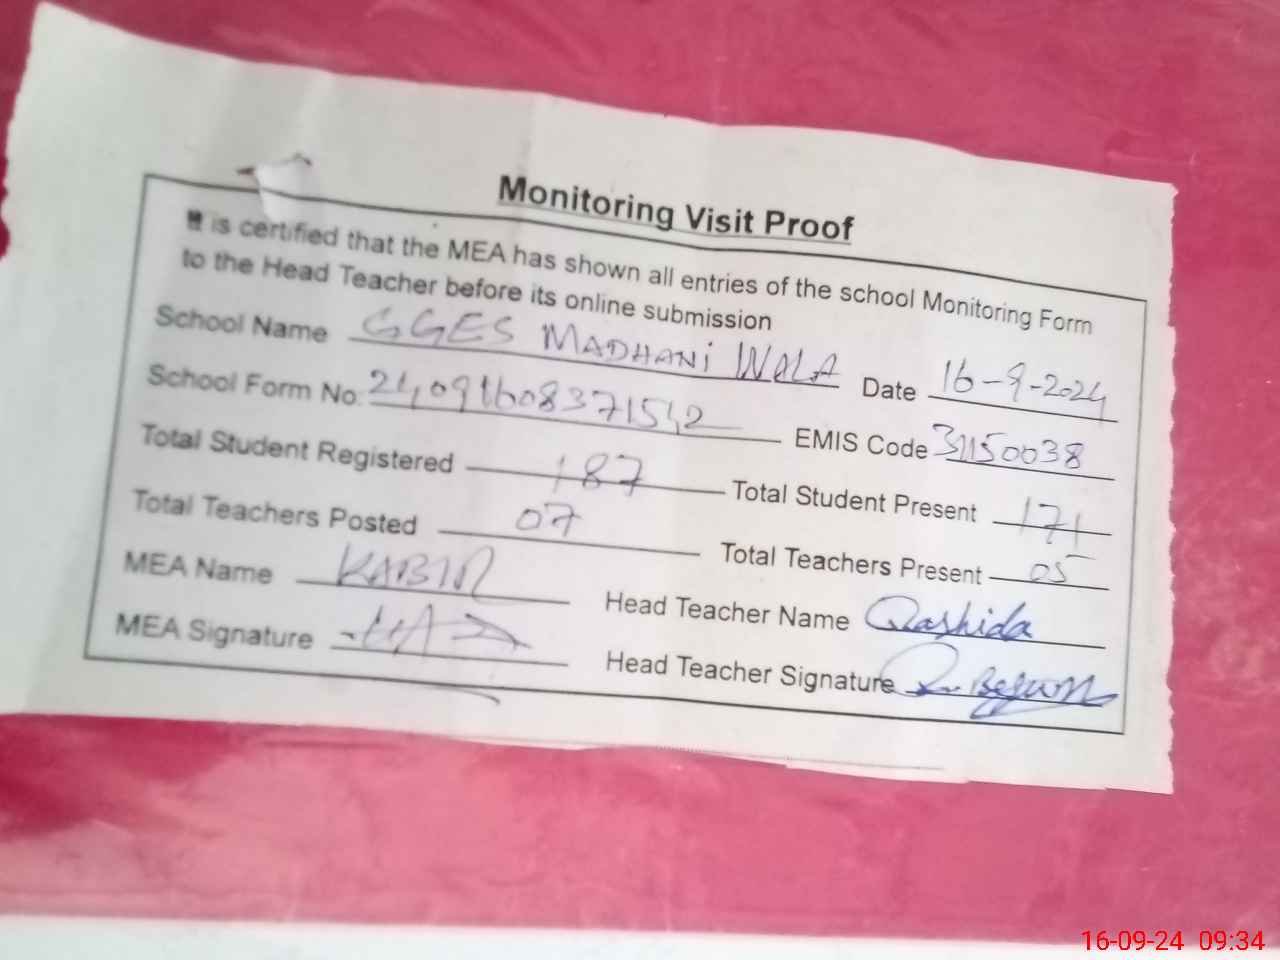 Monitoring Visit Proof
It is certified that the MEA has shown all entries of the school Monitoring Form
to the Head Teacher before its online submission
School Name GGES MADHANI WALA Date 16-9-2024
School Form No. EMIS Code 31150038
Total Student Registered 187 Total Student Present 171
Total Teachers Posted 07 Total Teachers Present 05
MEA Name KABIR Head Teacher Name Rashida
MEA Signature Head Teacher Signature R. Begum
16-09-24 09:34